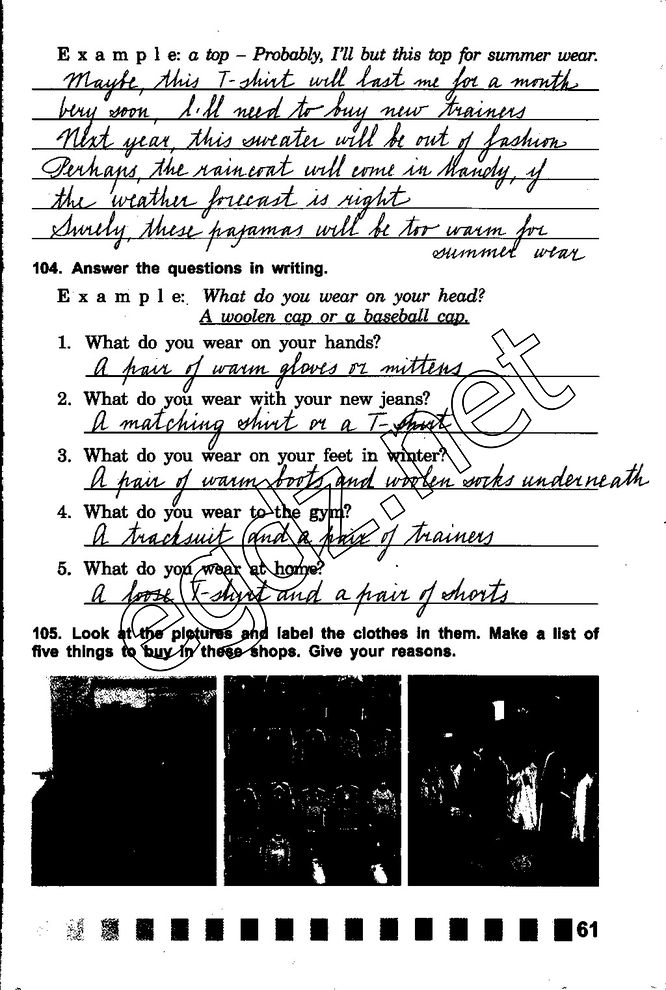 E x a m p l e: a top – Probably, I'll but this top for summer wear.
Maybe, this T-shirt will last me for a month
Very soon, I'll need to buy new trainers
Next year, this sweater will be out of fashion
Perhaps, the raincoat will come in handy, if
the weather forecast is right
Surely, these pajamas will be too warm for
summer wear
104. Answer the questions in writing.
E x a m p l e: What do you wear on your head?
A woolen cap or a baseball cap.
1. What do you wear on your hands?
A pair of warm gloves or mittens
2. What do you wear with your new jeans?
A matching shirt or a T-shirt
3. What do you wear on your feet in winter?
A pair of warm boots and woolen socks underneath
4. What do you wear to the gym?
A tracksuit and a pair of trainers
5. What do you wear at home?
A loose T-shirt and a pair of shorts
105. Look at the pictures and label the clothes in them. Make a list of
five things to buy in these shops. Give your reasons.
61
egdz.net